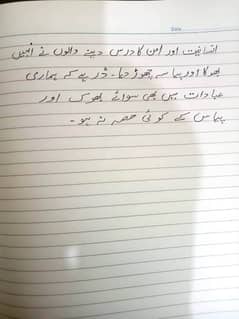 انسانیت اور امن کا درس دینے والوں نے انہیں
بھوکا اور پیاسہ چھوڑ دیا۔ ڈر ہے کہ ہماری
عبادات میں بھی سوائے بھوک اور
پیاس کے کوئی حصہ نہ ہو۔